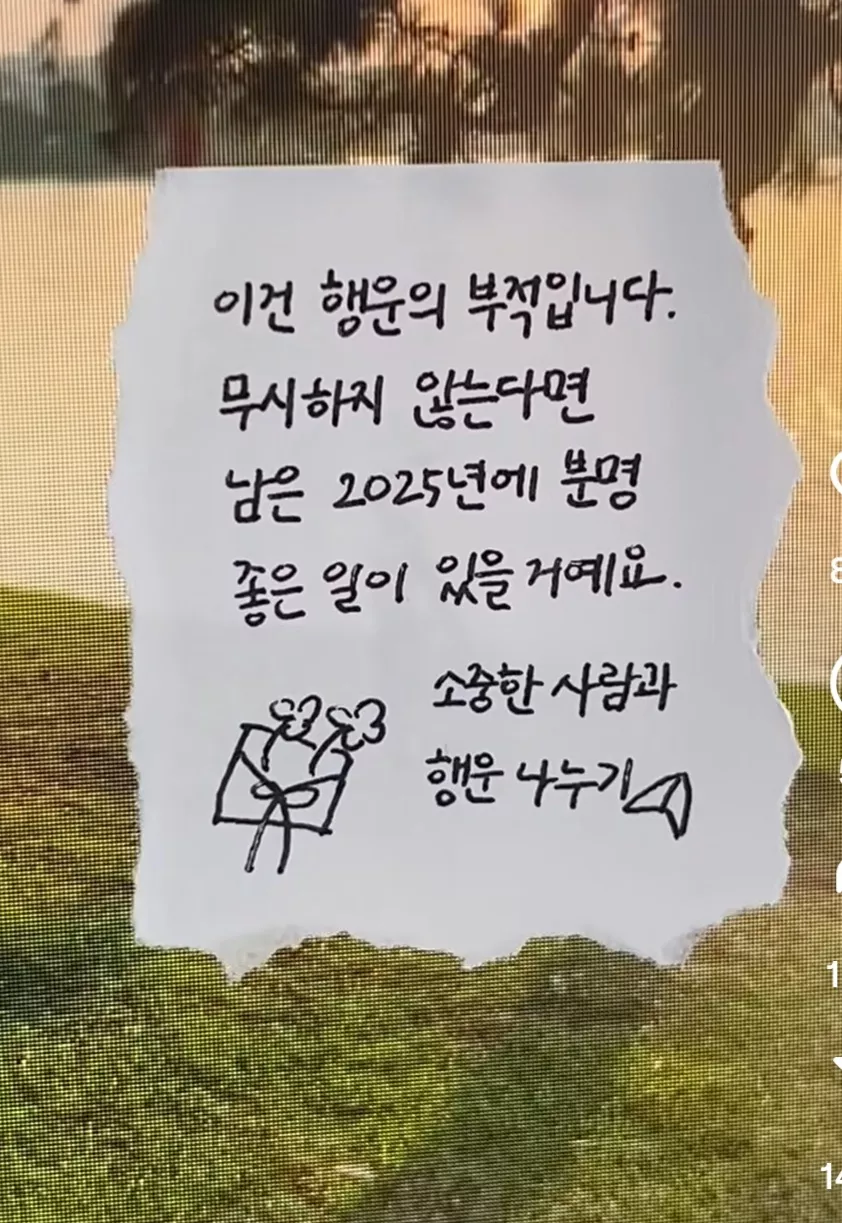 이건 행운의 부적입니다.
무시하지 않는다면
남은 2025년에 분명
좋은 일이 있을거예요.
소중한 사람과
행운 나누기